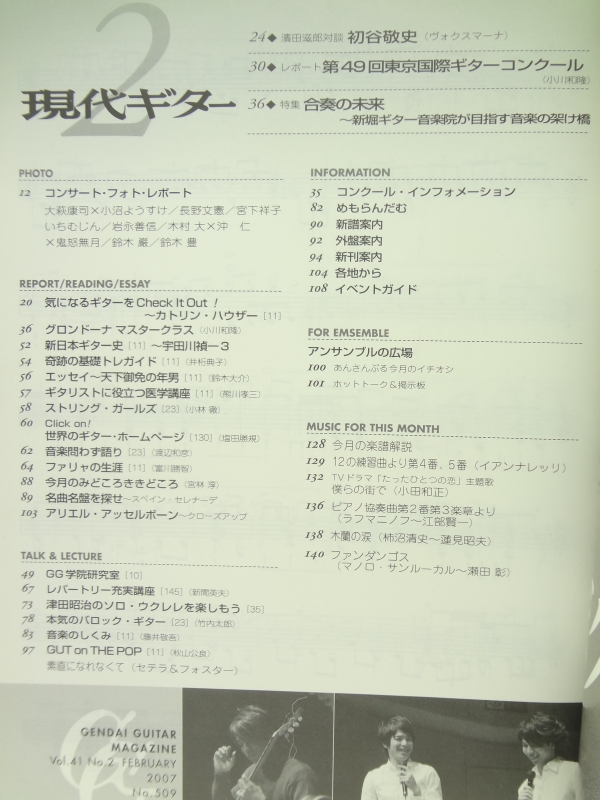 2
現代ギター
24◆ 濱田滋郎対談 初谷敬史（ヴォクスマーナ）
30◆ レポート 第49回東京国際ギターコンクール
（小川和隆）
36◆ 特集 合奏の未来
～新堀ギター音楽院が目指す音楽の架け橋
PHOTO
12 コンサート・フォト・レポート
大萩康司×小沼ようすけ／長野文憲／宮下祥子
いちむじん／岩永善信／木村 大×沖 仁
×鬼怒無月／鈴木 巌／鈴木 豊
REPORT/READING/ESSAY
20 気になるギターをCheck It Out！
～カトリン・ハウザー［11］
36 グロンドーナ マスタークラス（小川和隆）
52 新日本ギター史［11］～宇田川禎一3
54 奇跡の基礎トレガイド［11］（井桁典子）
56 エッセイ～天下御免の年男［11］（鈴木大介）
57 ギタリストに役立つ医学講座［11］（熊川孝三）
58 ストリング・ガールズ［23］（小林 徹）
60 Click on!
世界のギター・ホームページ［130］（塩田勝規）
62 音楽問わず語り［23］（渡辺和彦）
64 ファリャの生涯［11］（富川勝智）
88 今月のみどころききどころ（宮林 淳）
89 名曲名盤を探せ～スペイン・セレナーデ
103 アリエル・アッセルボーン～クローズアップ
TALK & LECTURE
49 GG学院研究室［10］
67 レパートリー充実講座［145］（新間英夫）
73 津田昭治のソロ・ウクレレを楽しもう［35］
78 本気のバロック・ギター［23］（竹内太郎）
83 音楽のしくみ［11］（藤井敬吾）
97 GUT on THE POP［11］（秋山公良）
素直になれなくて（セテラ＆フォスター）
INFORMATION
35 コンクール・インフォメーション
82 めもらんだむ
90 新譜案内
92 外盤案内
94 新刊案内
104 各地から
108 イベントガイド
FOR EMSEMBLE
アンサンブルの広場
100 あんさんぶる今月のイチオシ
101 ホットトーク＆掲示板
MUSIC FOR THIS MONTH
128 今月の楽譜解説
129 12の練習曲より第4番、5番（イアンナレッリ）
132 TVドラマ「たったひとつの恋」主題歌
僕らの街で（小田和正）
136 ピアノ協奏曲第2番第3楽章より
（ラフマニノフ～江部賢一）
138 木蘭の涙（柿沼清史～蓮見昭夫）
140 ファンダンゴス
（マノロ・サンルーカル～瀬田 彰）
GENDAI GUITAR
MAGAZINE
Vol.41 No.2 FEBRUARY
2007
No.509